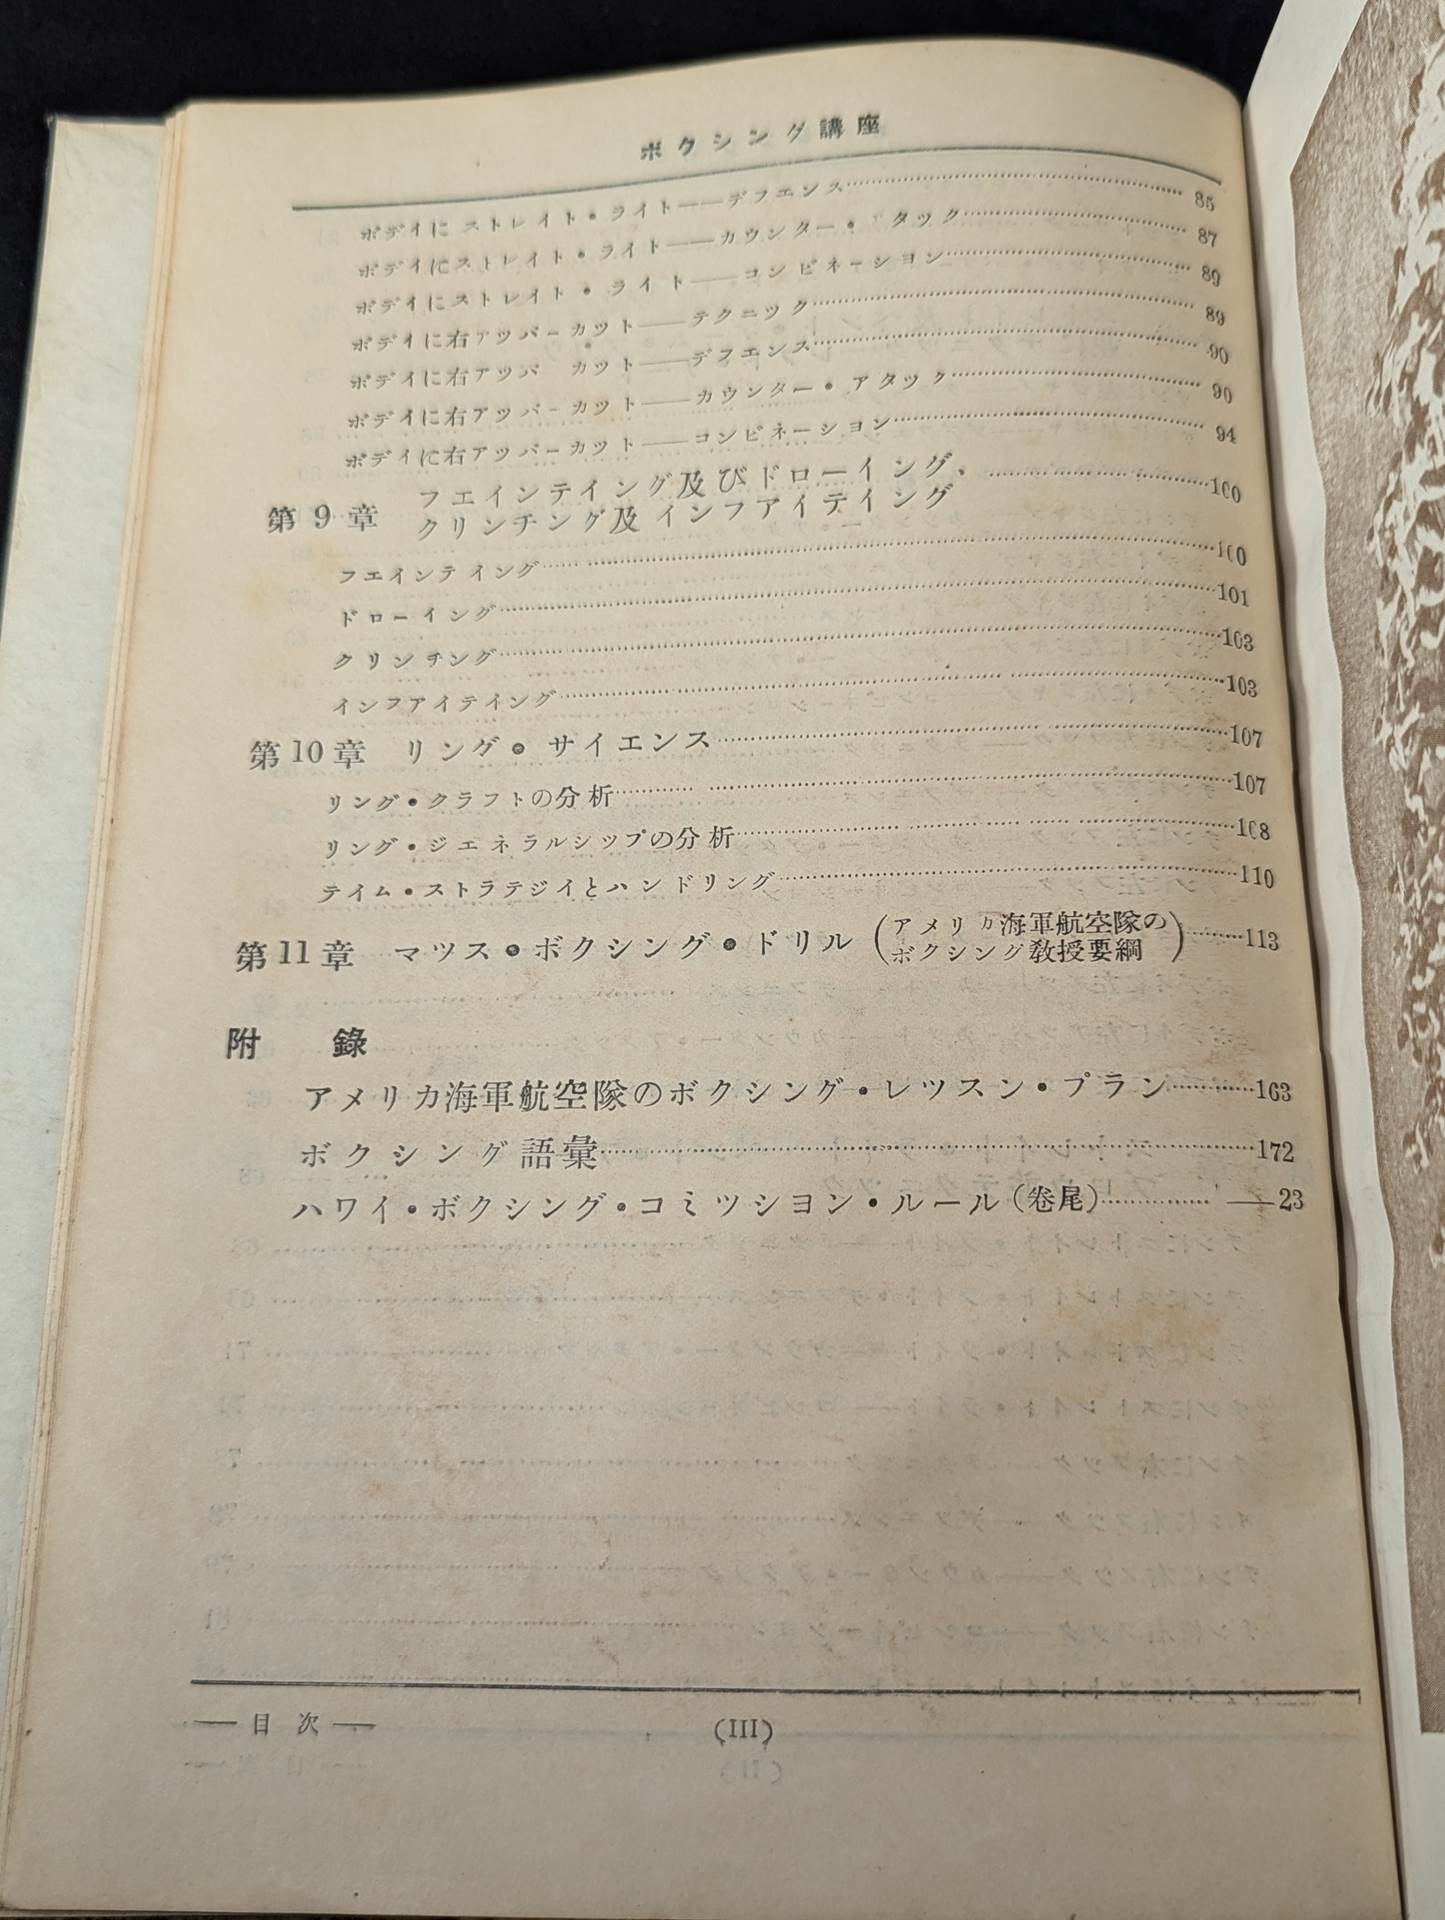 ボクシング講座
ボデイに ストレイト・ライト――デフエンス…… 85
ボデイにストレイト・ライト――カウンター・ タツク…… 87
ボデイにストレイト・ライト――コンビネーシヨン…… 89
ボデイに右アツバーカツト――テクニツク…… 89
ボデイに右アツバ カツト――デフエンス…… 90
ボデイに右アツバーカツト――カウンター・アタツク…… 90
ボデイに右アツバーカツト――コンビネーシヨン…… 94
第9章 フエインテイング及びドローイング、
クリンチング及インフアイテイング……100
フエインテイング……100
ドローイング……101
クリンチング……103
インフアイテイング……103
第10章 リング・サイエンス……107
リング・クラフトの分析……107
リング・ジエネラルシツプの分析……108
テイム・ストラテジイとハンドリング……110
第11章 マツス・ボクシング・ドリル(アメリカ海軍航空隊の
ボクシング教授要綱)……113
附 錄
アメリカ海軍航空隊のボクシング・レツスン・プラン……163
ボクシング語彙……172
ハワイ・ボクシング・コミツシヨン・ルール(巻尾)…… ―23
― 目 次 ―
(III)